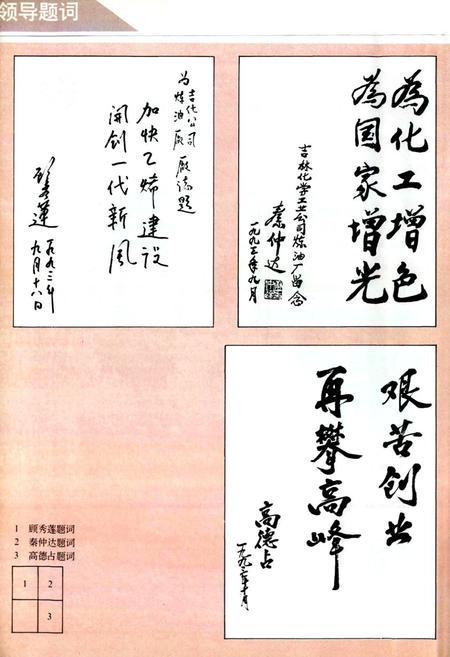 领导题词
为吉化公司
炼油厂 厂志题
加快乙烯建设
开创一代新风
顾秀莲
一九九三年
九月十八日
為化工增色
為国家增光
吉林化学工业公司炼油厂留念
秦仲达
一九九三年九月
艰苦创业
再攀高峰
高德占
一九九三年十月
1 顾秀莲题词
2 秦仲达题词
3 高德占题词
1 2
3